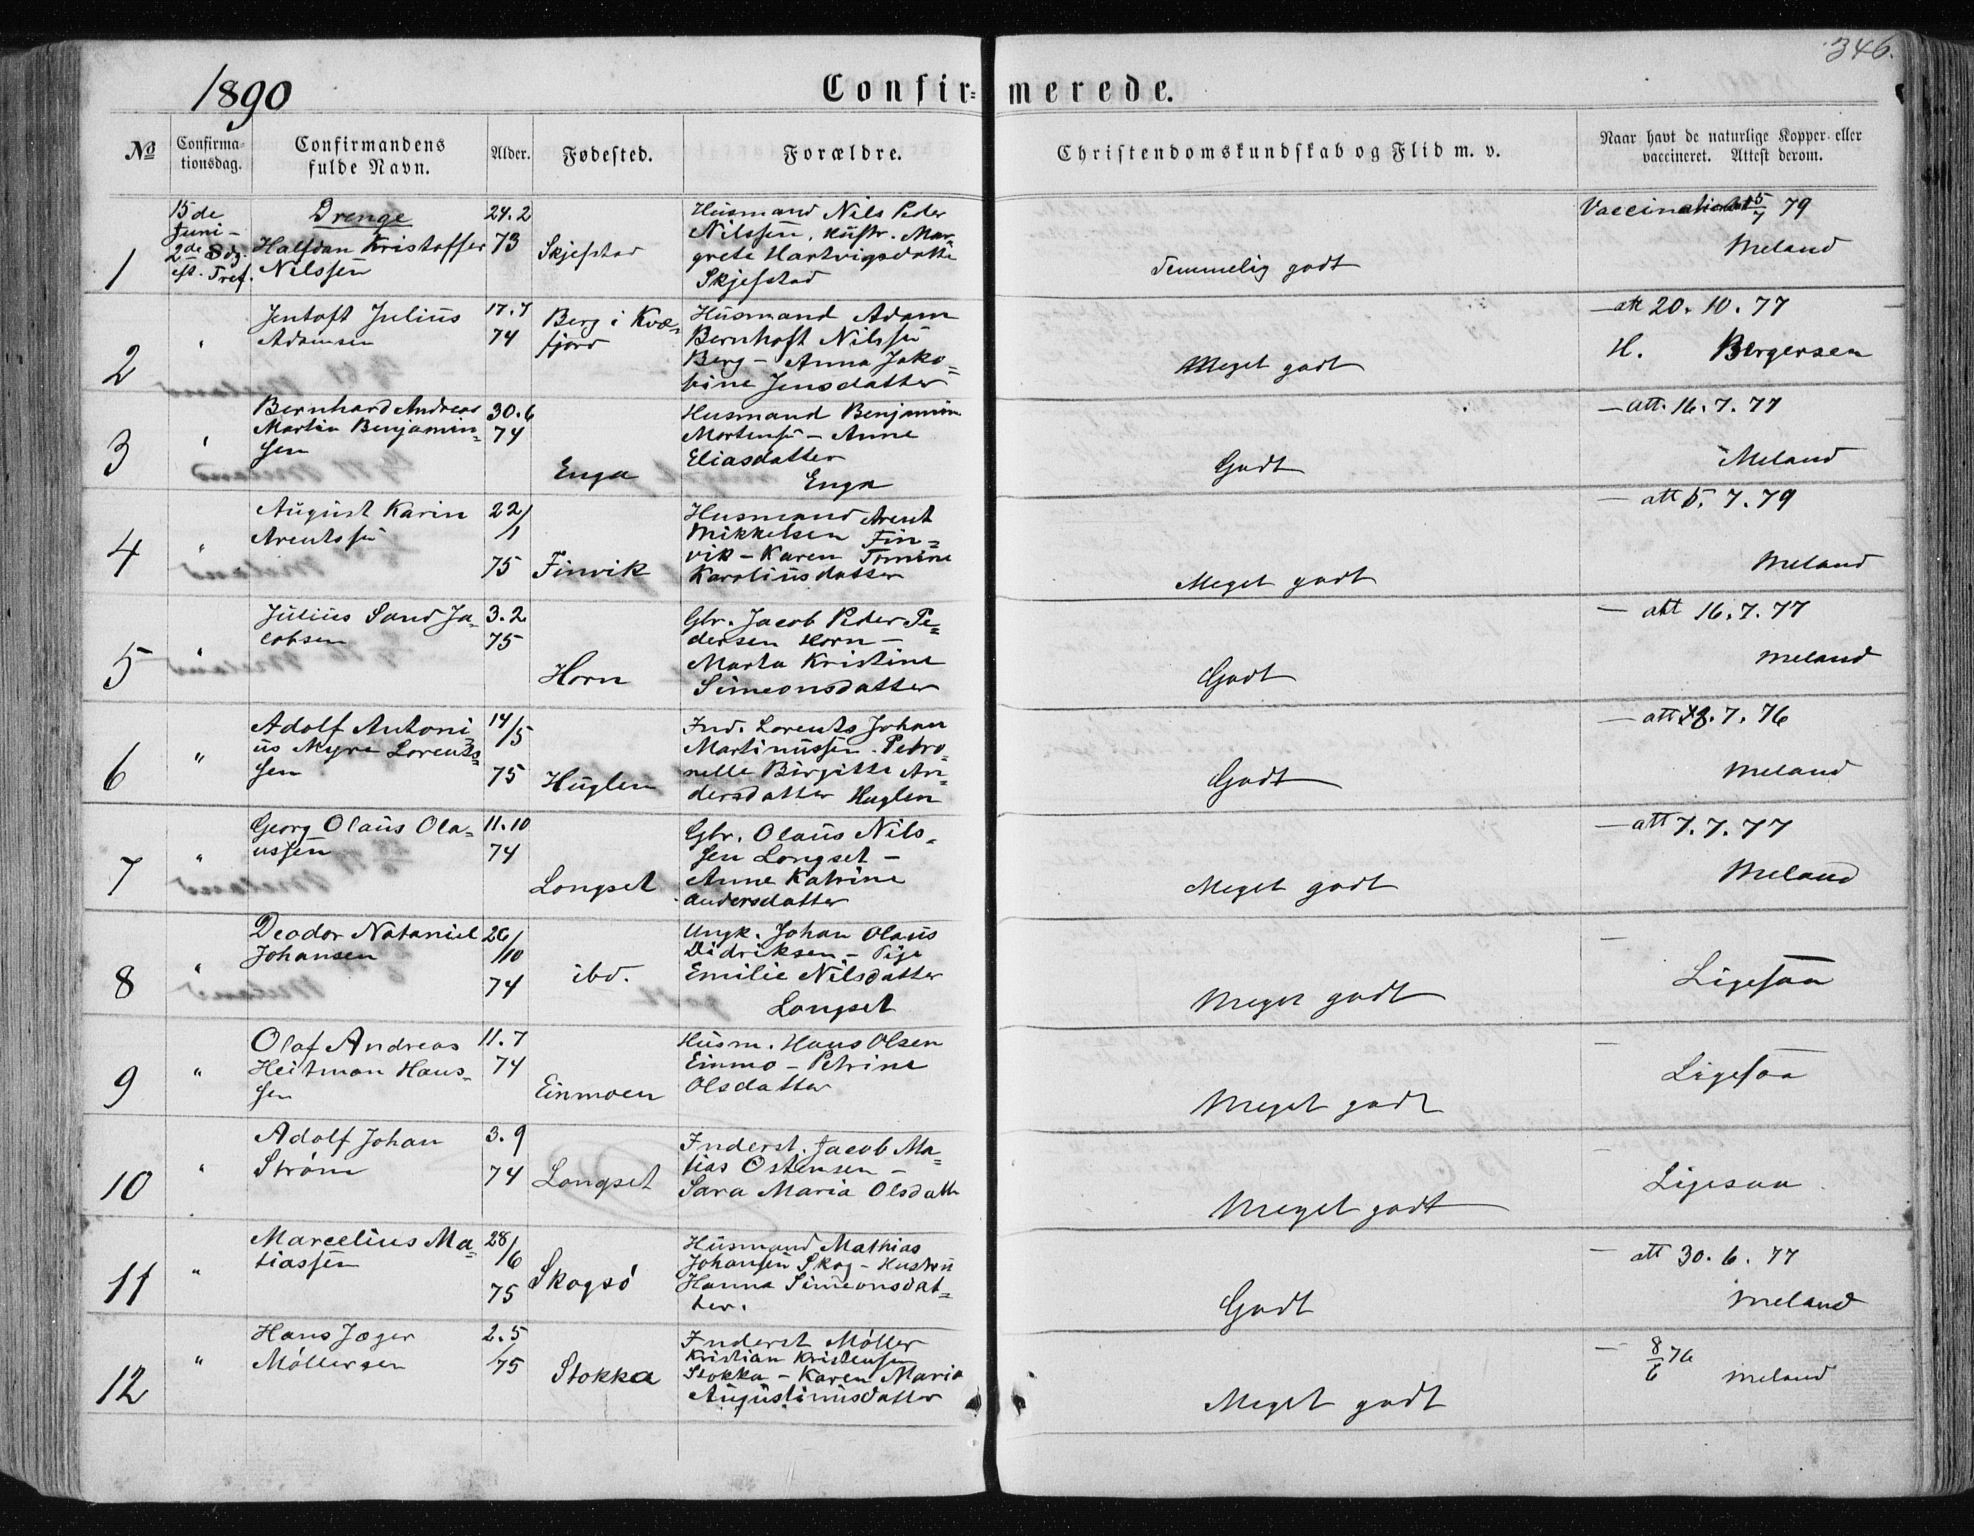 346.
1890
Confir= merede.
№ Confirma-tionsdag. Confirmandens fulde Navn. Alder. Fødested. Forældre. Christendomskundskab og Flid m. v. Naar havt de naturlige Kopper eller vaccineret. Attest derom.
15de Juni - 2de Sdg. eft. Tref.
Drenge
1 Halfdan Kristoffer Nilssen 24.2 73 Skjefstad
Husmand Nils Peder
Nilssen, Hustr. Mar
grete Hartvigsdatte
Skjefstad
Temmelig godt
5/7 79
Meland
2 " Jentoft Julius Adamsen 17.7 74 Berg i Kvæ= fjord
Husmand Adam
Bernhoft Nilssen
Berg - Anna Jako=
bine Jensdatter
Meget godt
- att 20. 10. 77
H. Bergersen
3 " Bernhard Andreas Martin Benjamin= sen 30.6 74 Enga
Husmand Benjamin
Mortensen - Anne
Eliasdatter
Enga
Godt
- att. 16. 7. 77
Meland
4 " August Karin Arentssen 22/1 75 Finvik
Husmand Arent
Mikkelsen Fin=
vik - Karen Tomine
Karoliusdatter
Meget godt
- att 5. 7. 79
Meland
5 " Julius Sand Ja= cobsen 3.2 75 Horn
Gbr. Jacob Peder Pe=
dersen Horn -
Marta Kristine
Simeonsdatter
Godt
- att 16. 7. 77
Meland
6 " Adolf Antoni us Myre Lorents= sen 14/5 75 Huglen
Ind. Lorents Johan
Martinussen - Petro=
nelle Birgitte An
dersdatter Huglen
Godt
- att 18. 7. 76
Meland
7 " Georg Olaus Ola= ussen 11.10 74 Longset
Gbr. Olaus Nils=
sen Longset -
Anne Katrine
Andersdatter
Meget godt
- att 7. 7. 77
Meland
8 " Deodor Nataniel Johansen 26/10 74 ibd.
Ungk. Johan Olaus
Didriksen - Pige
Emilie Nilsdatter
Longset
Meget godt
- Ligesaa
9 " Olaf Andreas Heitman Hans= sen 11.7 74 Einmoen
Husm. Hans Olsen
Einmo - Petrine
Olsdatter
Meget godt
- Ligesaa
10 " Adolf Johan Strøm 3.9 74 Longset
Inderst. Jacob Ma=
tias Ostensen -
Sara Maria Olsdatt
Meget godt
- Ligesaa
11 " Marcelius Ma= tiassen 28/6 75 Skogsö
Husmand Mathias
Johansen Skog - Hustru
Hanna Simeonsdat=
ter.
Godt
- att 30. 6. 77
Meland
12 " Hans Jæger Möllersen 2.5 75 Stokka
Inderst Möller
Kristian Kristensen
Stokka - Karen Maria
Augustinusdatter
Meget godt
- 8/6 76 Meland